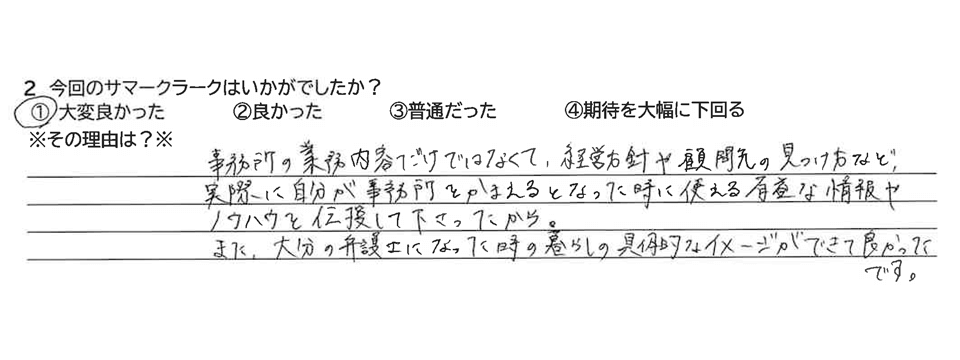 2 今回のサマークラークはいかがでしたか？
①大変良かった ②良かった ③普通だった ④期待を大幅に下回る
※その理由は？※
事務所の業務内容だけではなくて、経営方針や顧問先の見つけ方など、
実際に自分が事務所をかまえるとなった時に使える有益な情報や
ノウハウを伝授して下さったから。
また、大分の弁護士になった時の暮らしの具体的なイメージができて良かった
です。